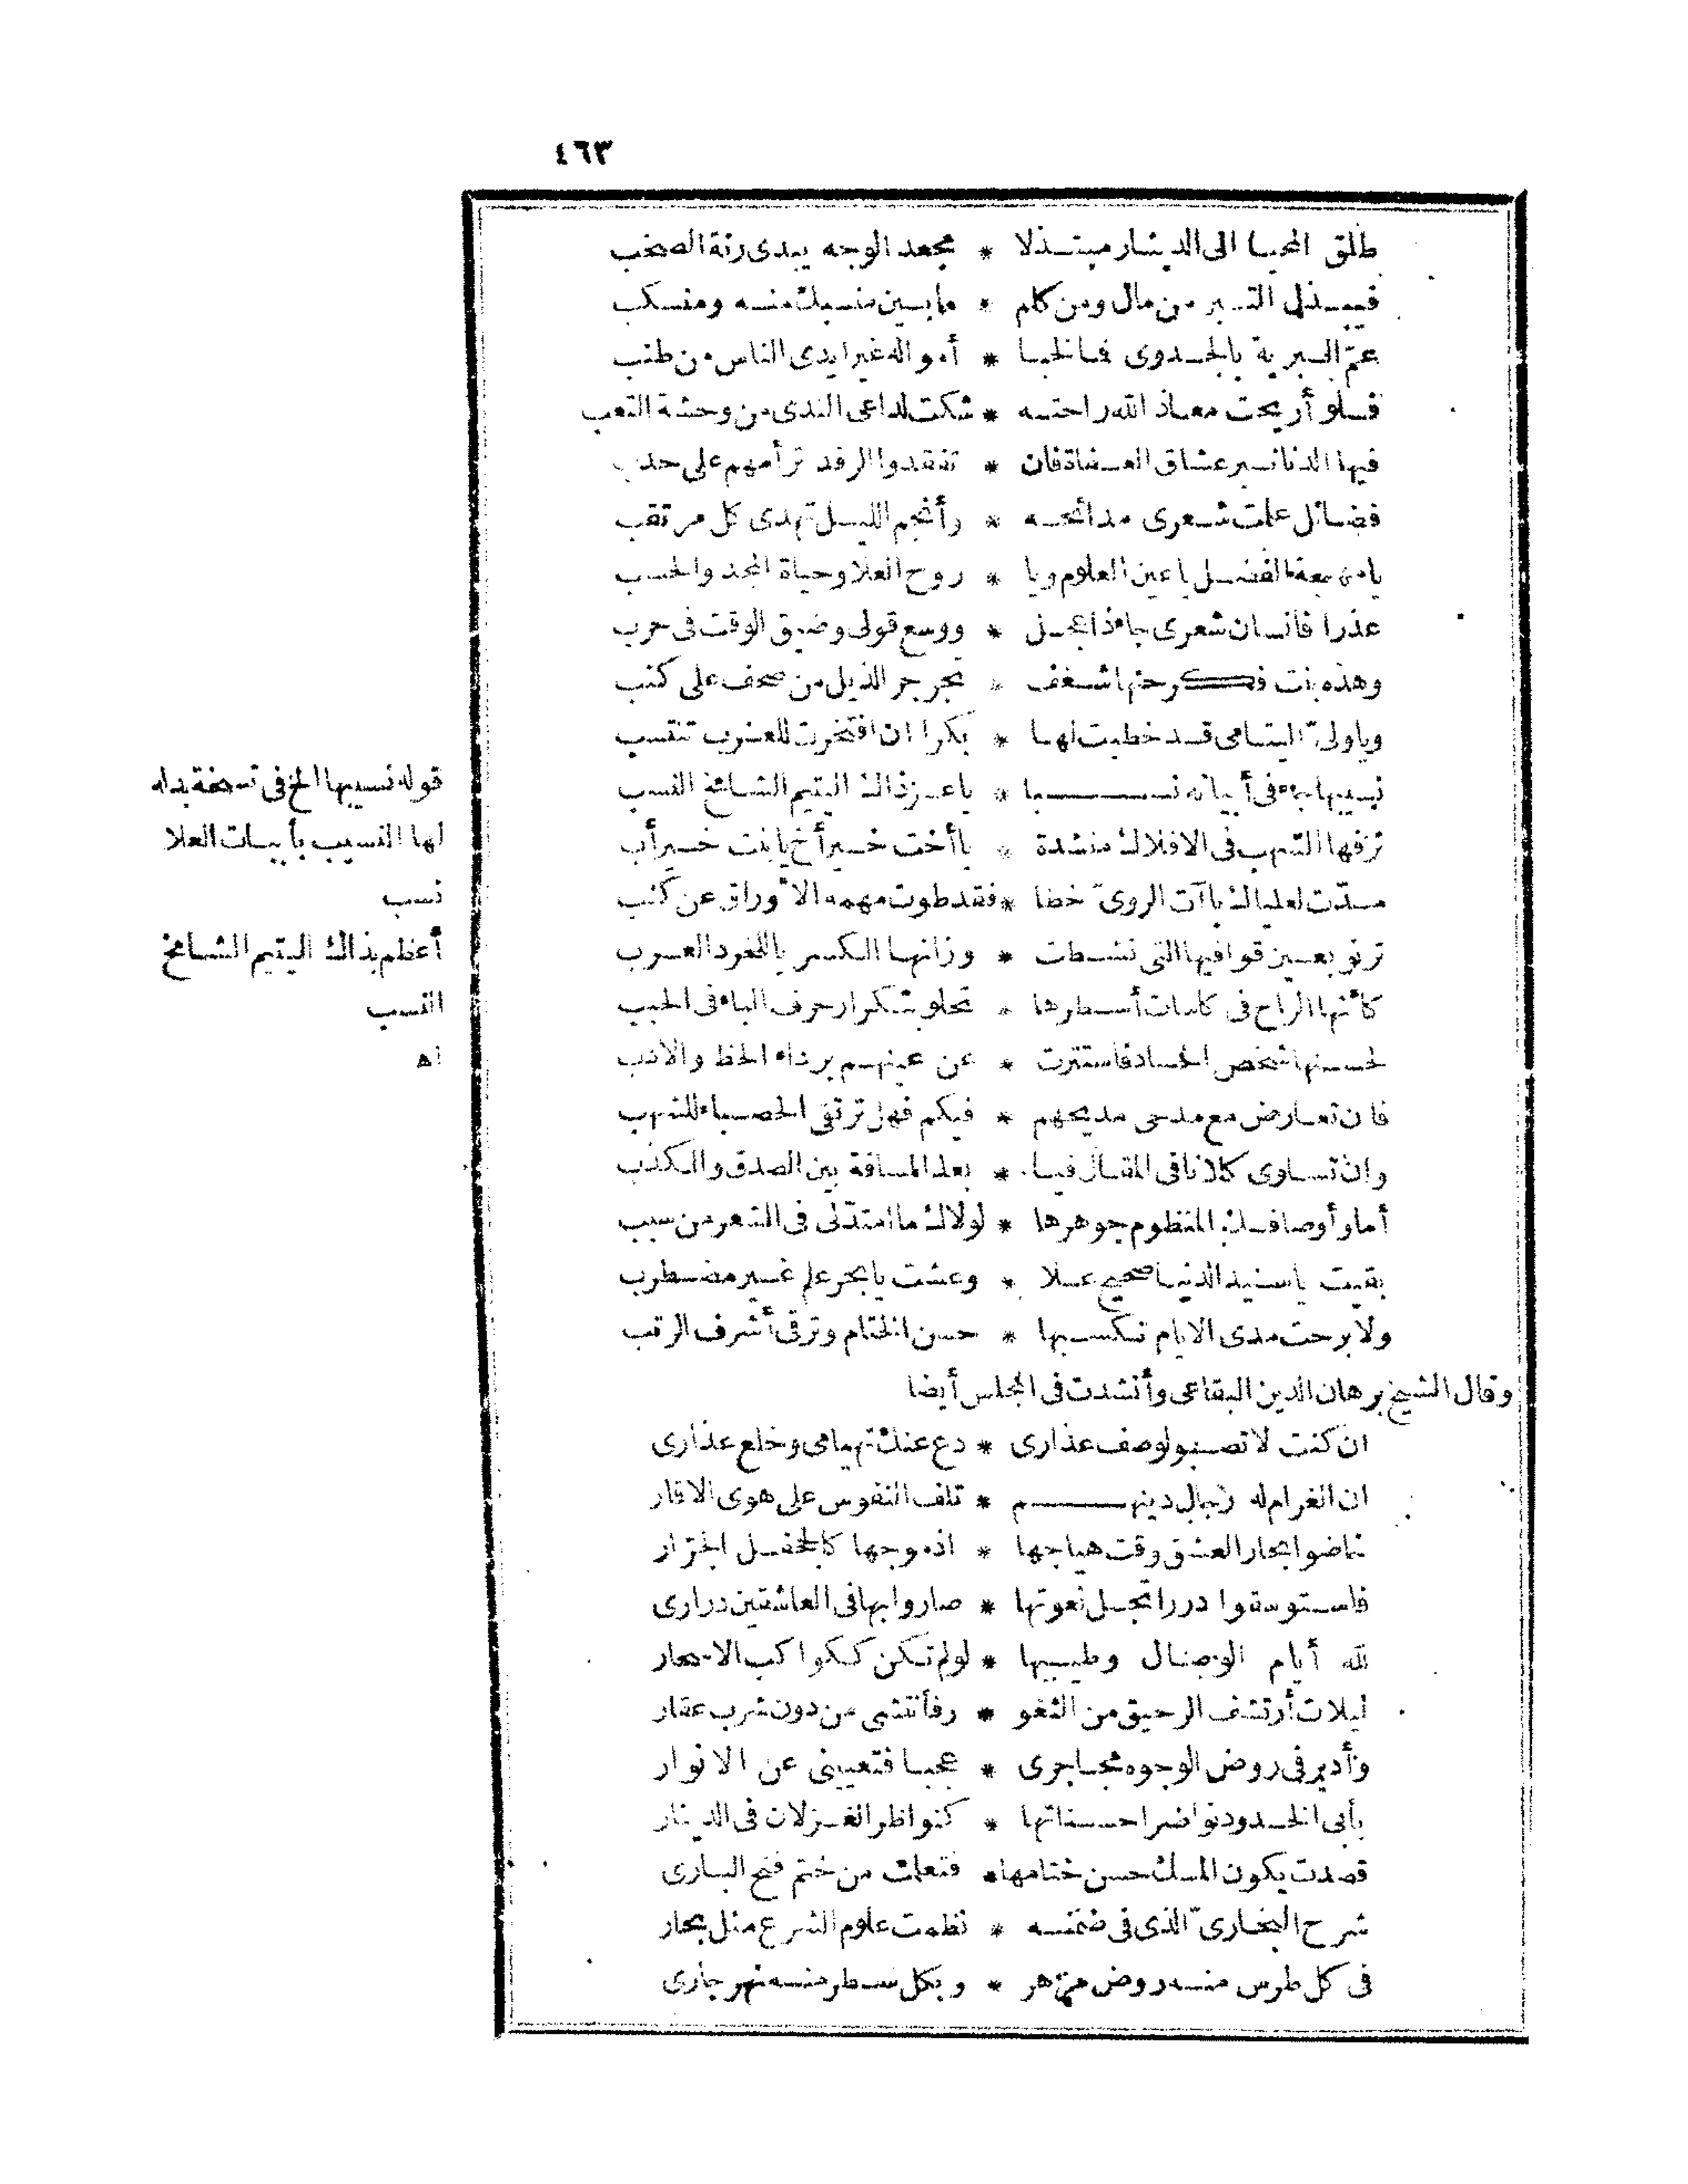 ٤٦٣
طلق المحيا الى الدينار مبتذلا * مجعد الوجه يبدى رنة الصخب
فيبذل التبر من مال ومن كلم * ما بين منسبك منه ومنسكب
عمّ البرية بالجدوى فما لخبا * أمواله غير ايدى الناس من طنب
فلو أريحت معاذ الله راحته * شكت لداعى الندى من وحشة التعب
فيها الدنانير عشاق العفاة فان * تفقدوا الرفد ترأمهم على حدب
فضائل علمت شعرى مدائحه * رأنجم الليل تهدى كل مرتقب
يا العلوم ويا * روح العلا وحياة المجد والحسب
عذرا فانسان شعرى جاء ذا عجل * ووسع قولى وضيق الوقت فى حرب
وهذه بنت فكر حثها شغف * تجر جر الذيل من صحف على كتب
وياولىّ اليتامى قد خطبت لها * بكرا ان افتخرت للعرب تنتسب
نسيبها جاء فى أبياته نسبا * يا عز ذاك اليتيم الشامخ النسب
تزفها الشهب فى الافلاك منشدة * يا أخت خير أخ يا بنت خير أب
مدّت لعلياك باآت الروىّ خطا * فقد طوت مهمه الاوراق عن كثب
ترنو بعين قوافيها التى نشطت * وزانها الكسر باللخرد العرب
كأنها الراح فى كاسات أسطرها * تحلو بتكرار حرف الباء فى الحبب
لحسنها شخص الحساد فاستترت * عن عينهم برداء الحظ والادب
فان تعارض مع مدحى مديحهم * فيكم فهل ترتقى الحصباء للشهب
وان تساوى كلانا فى المقال فيا * بعد المسافة بين الصدق والكذب
أما وأوصافك المنظوم جوهرها * لولاك ما امتدّ لى فى الشعر من سبب
بقيت يا سنيد الدنيا صحيح علا * وعشت يا بحر علم غير مضطرب
ولا برحت مدى الايام تكسبها * حسن الختام وترقى أشرف الرتب
قوله نسيبها الخ فى نسخة بدله
لها النسيب بأبيات العلا
نسب
أعظم بذاك اليتيم الشامخ
النسب
اه
وقال الشيخ برهان الدين البقاعى وأنشدت فى المجلس أيضا
ان كنت لا تصبو لوصف عذارى * دع عنك تهيامى وخلع عذارى
ان الغرام له رجال دينهم * تلف النفوس على هوى الاقار
خاضوا بحار العشق وقت هياجها * اذ موجها كالجحفل الجرّار
فاستوسقوا دررا تجل نعوتها * صاروا بها فى العاشقين درارى
لله أيام الوصال وطيبها * لو لم تكن ككواكب الاسحار
ليلات أرتشف الرحيق من الثغو * رفأنتشى من دون شرب عقار
وأدير فى روض الوجوه محاجرى * عجبا فتعيينى عن الانوار
بأبى الخدود نواضرا حسناتها * كنواظر الغزلان فى الدينار
قصدت يكون المسك حسن ختامها * فتعلمت من ختم فتح البارى
شرح البخارىّ الذى فى ضمنه * نظمت علوم الشرع مثل بحار
فى كل طرس منه روض مزهر * وبكل سطر منه نهر جارى